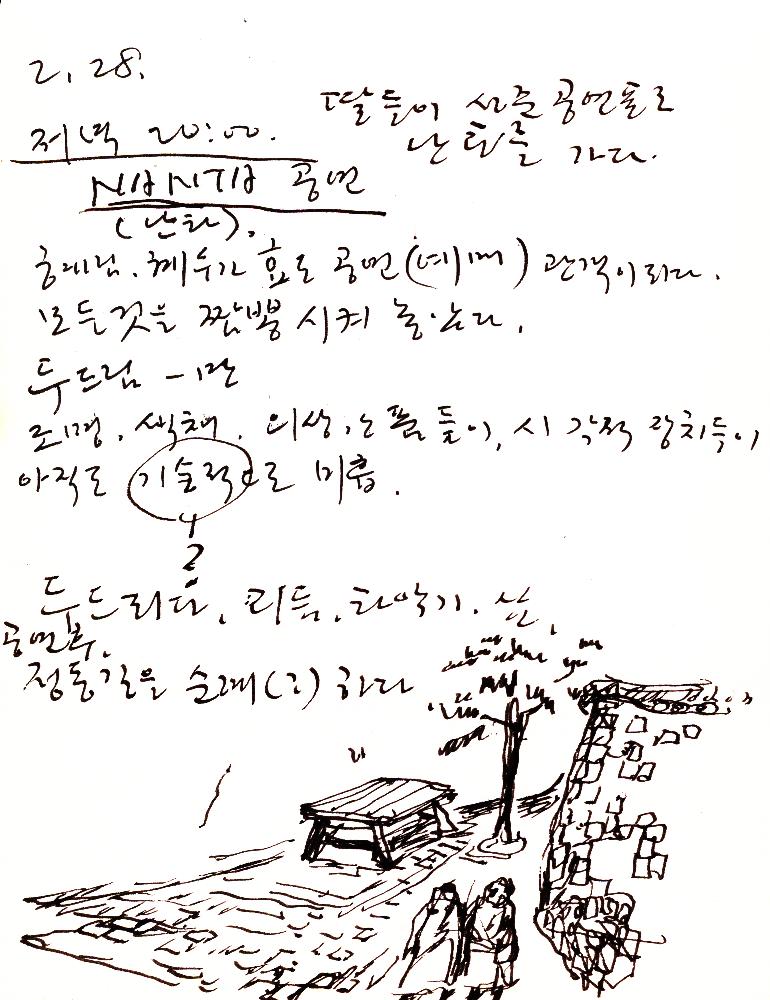 2. 28.
딸들이 사준 공연표로
난타를 가다.
저녁 20:00.
NANTA 공연
(난타).
공연(예매) 관객이 되다.
모든것을 짬뽕 시켜 놓았다.
두드림 -
조명, 색채, 의상, 소품들이, 시각적 장치들이
아직도 기술적으로 미흡.
?
두드리다, 리듬, 타악기,
공연후,
정동길을 순례(?) 하다